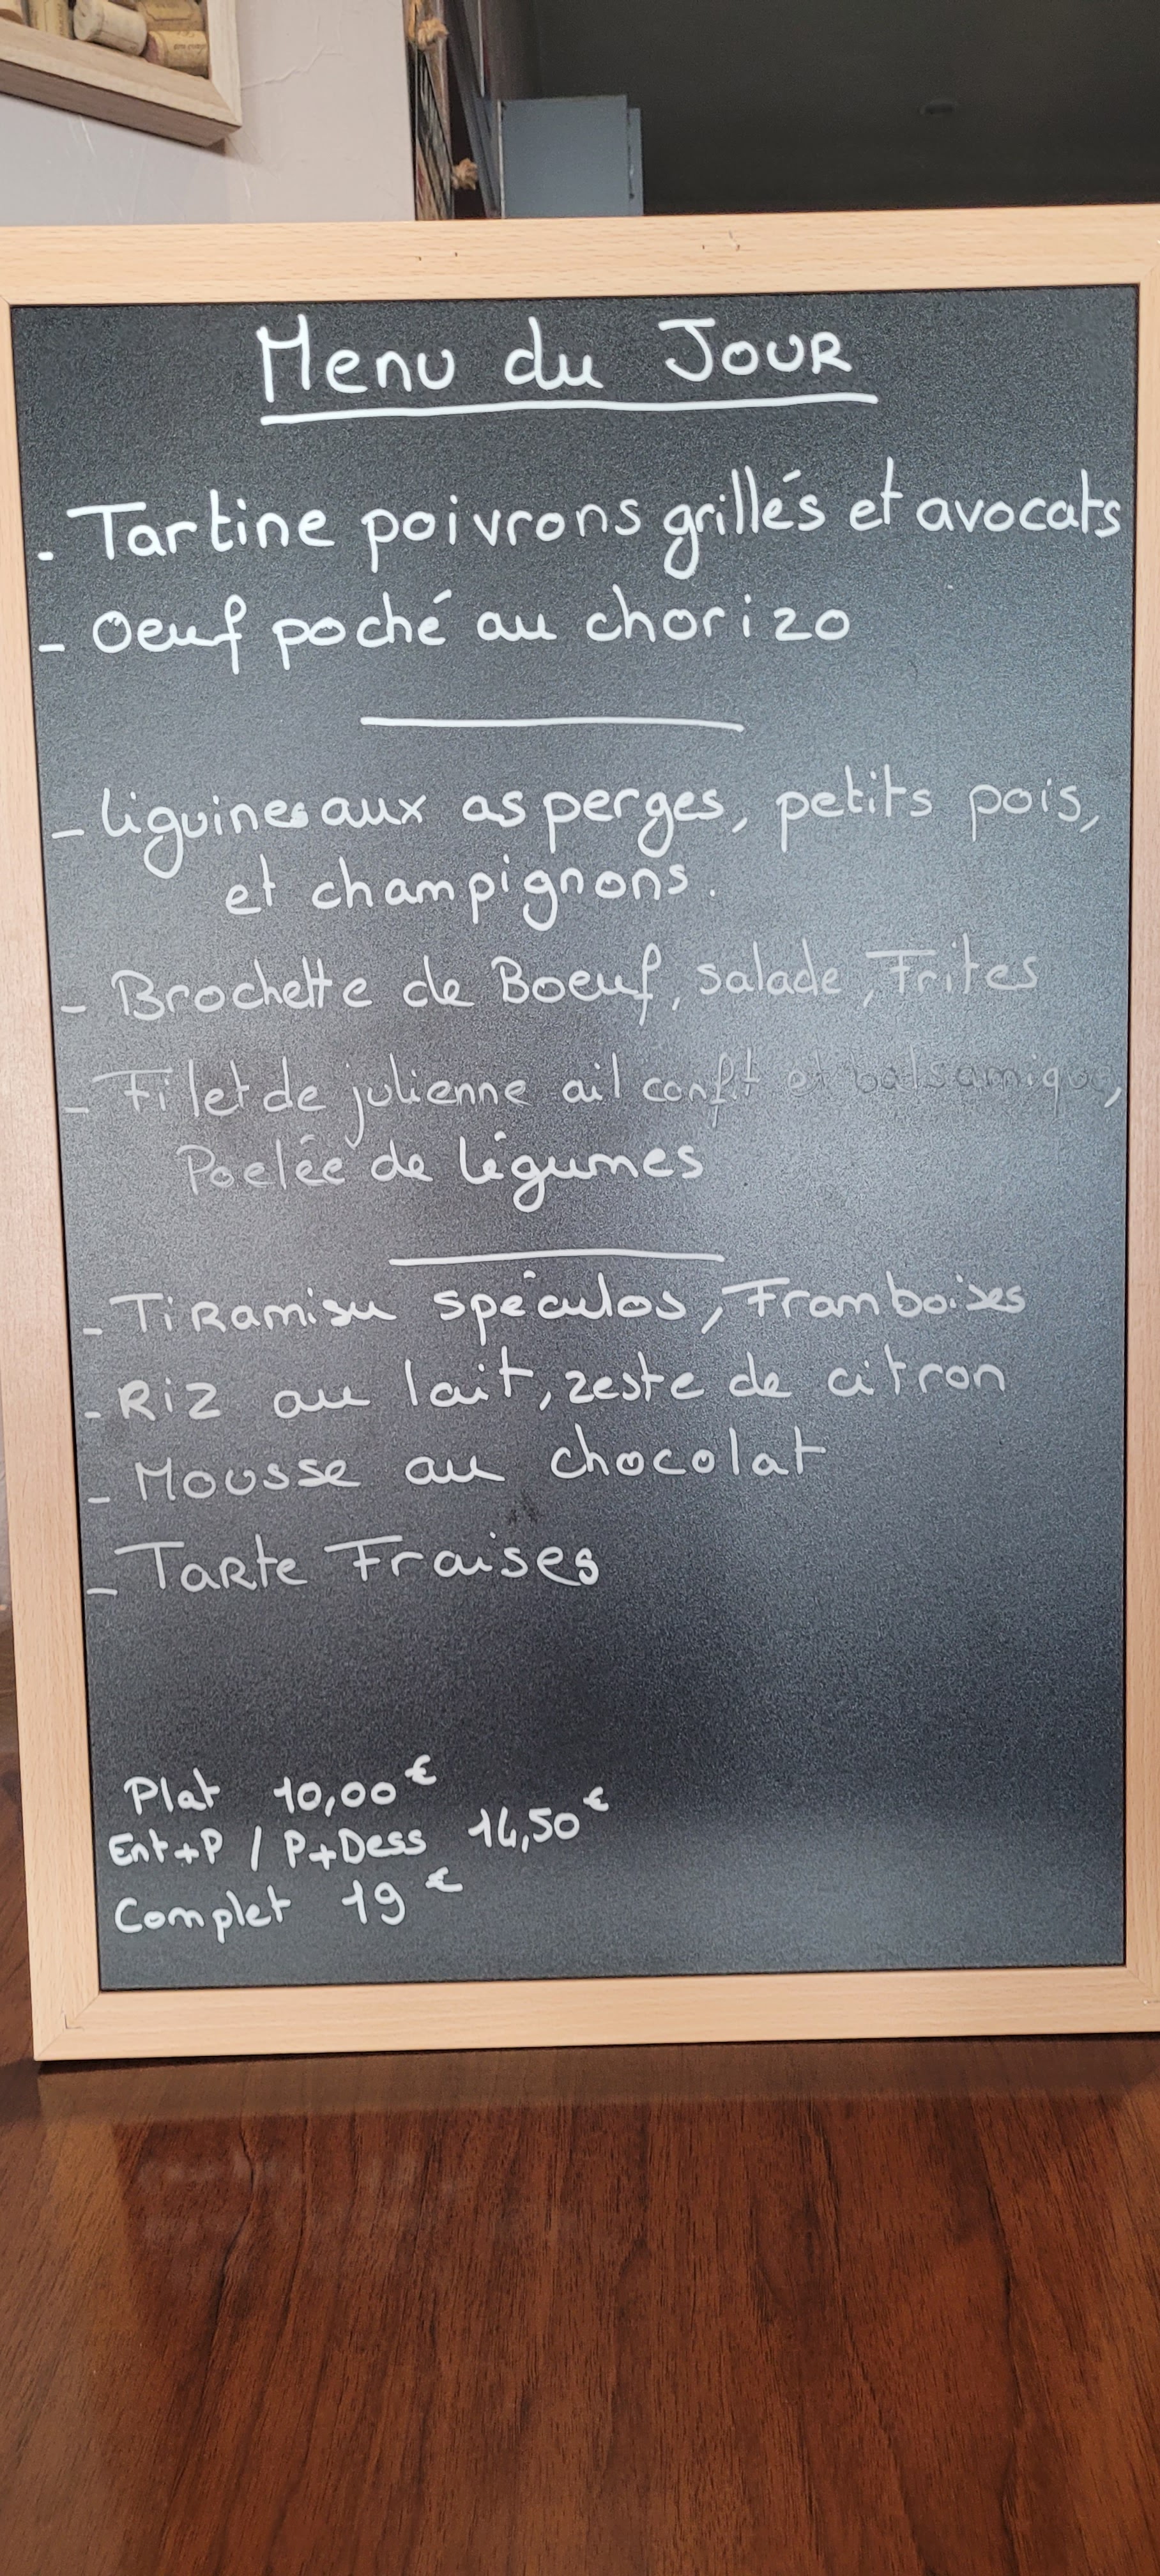 Menu du Jour
- Tartine poivrons grillés et avocats
- Oeuf poché au chorizo
- liguines aux asperges, petits pois,
et champignons.
- Brochette de Boeuf, salade, Frites
- Filet de julienne ail confit et balsamique,
Poelée de légumes
- Tiramisu spéculos, Framboises
- Riz au lait, zeste de citron
- Mousse au chocolat
- Tarte Fraises
Plat 10,00€
Ent+P / P+Dess 14,50€
Complet 19€